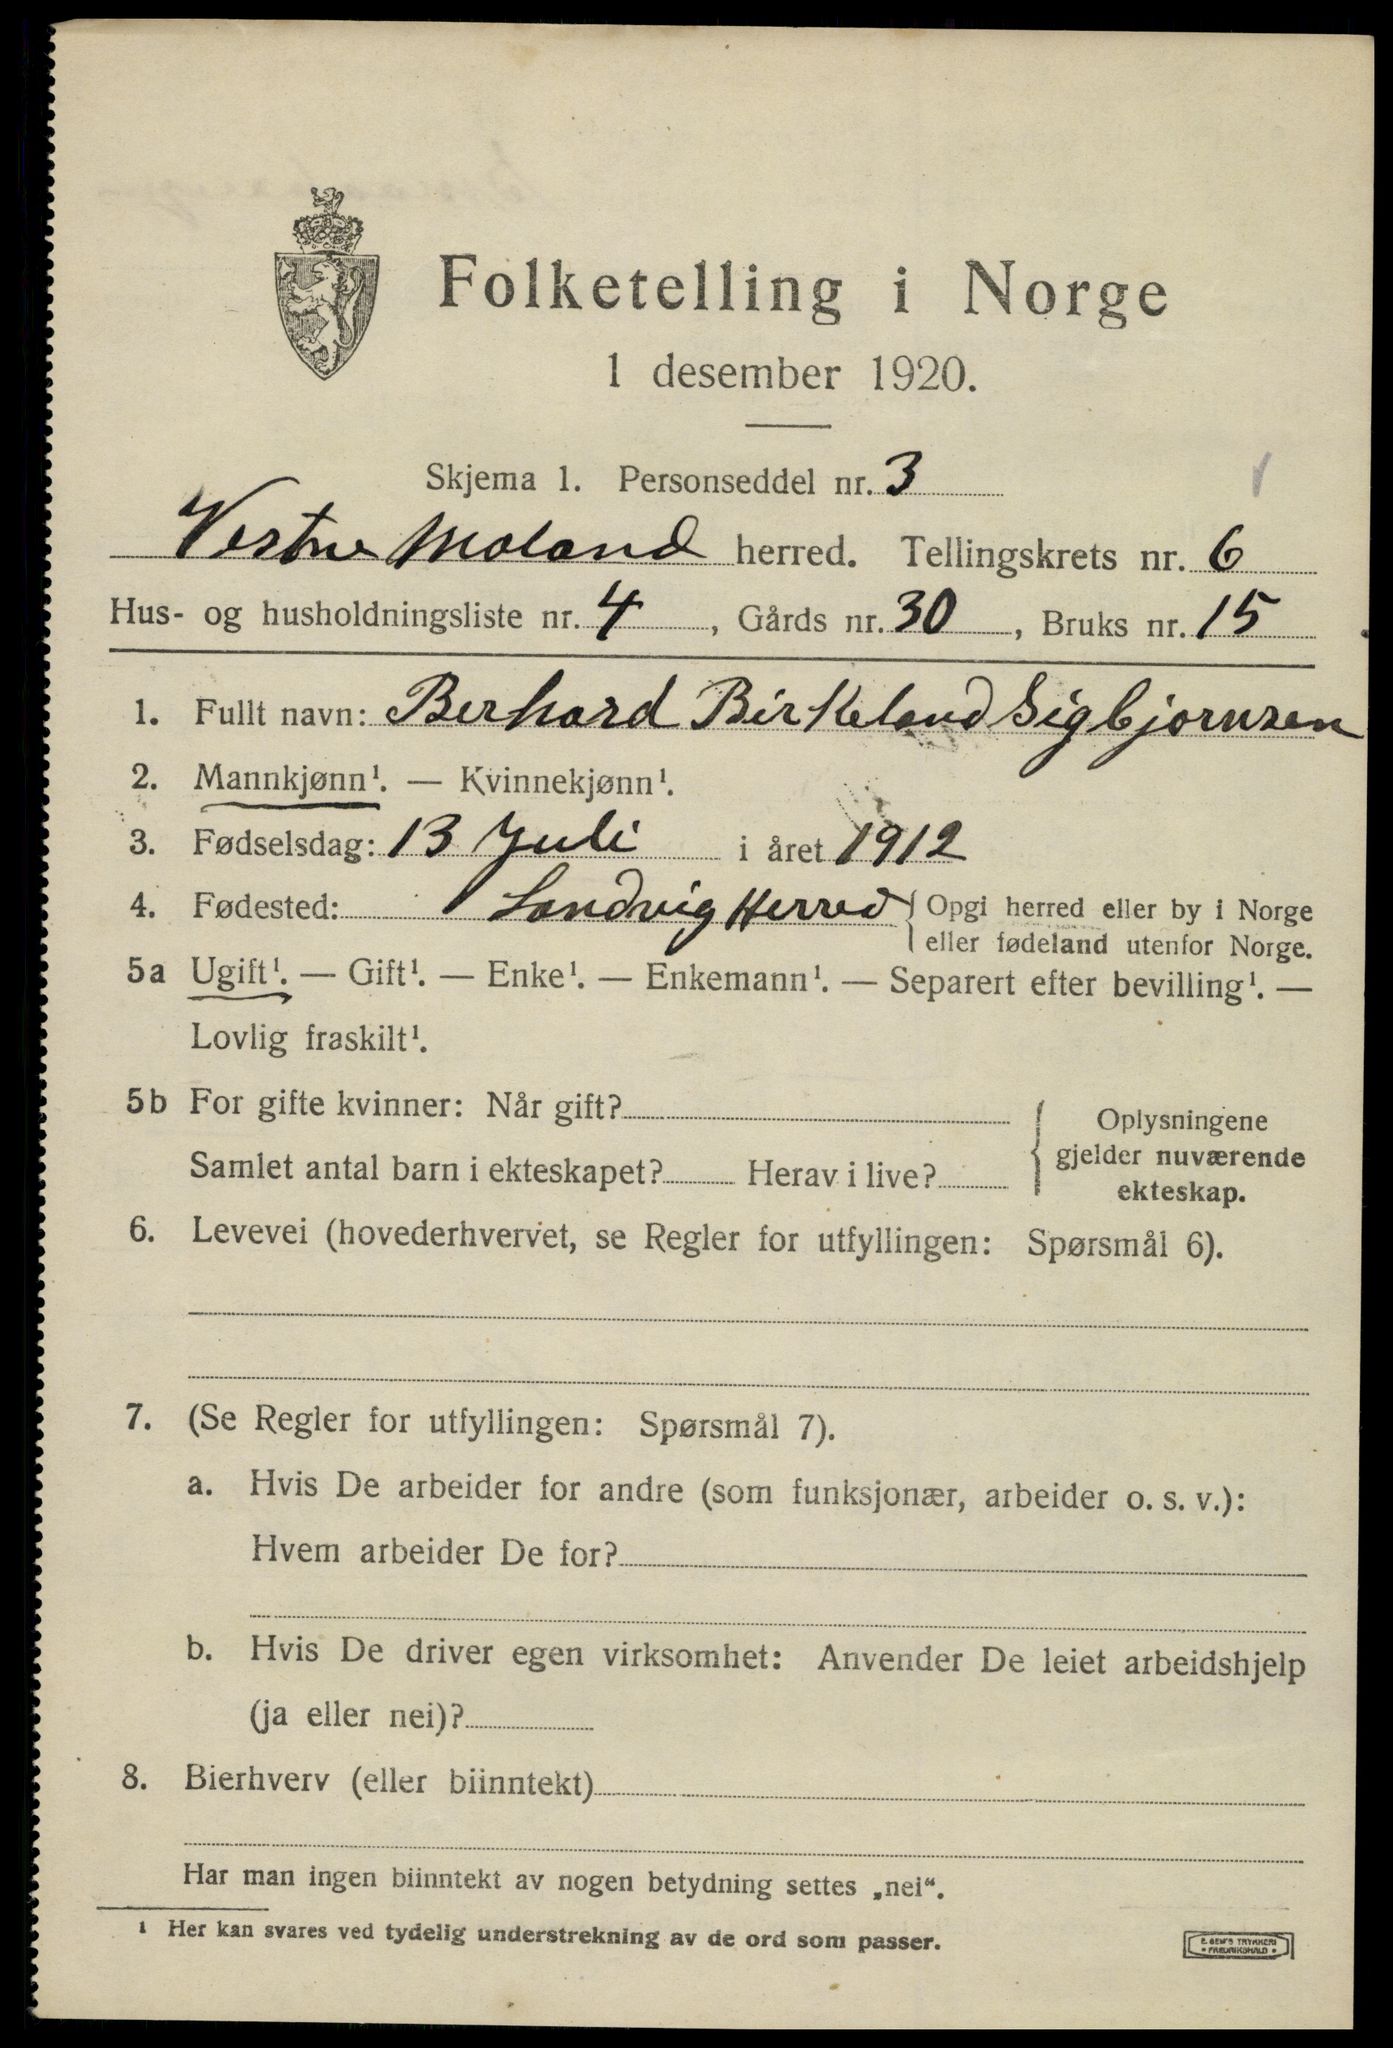 Folketelling i Norge
1 desember 1920.
Skjema 1. Personseddel nr. 3
Vestre Moland herred. Tellingskrets nr. 6
Hus- og husholdningsliste nr. 4, Gårds nr. 30, Bruks nr. 15
1. Fullt navn: Berhard Birkeland Sigbjornsen
2. Mannkjønn¹. — Kvinnekjønn¹.
3. Fødselsdag: 13 Juli i året 1912
4. Fødested: Landvig Herred { Opgi herred eller by i Norge
eller fødeland utenfor Norge.
5a Ugift¹. — Gift¹. — Enke¹. — Enkemann¹. — Separert efter bevilling¹. —
Lovlig fraskilt¹.
5b For gifte kvinner: Når gift?
Samlet antal barn i ekteskapet? Herav i live?
{ Oplysningene
gjelder nuværende
ekteskap.
6. Levevei (hovederhvervet, se Regler for utfyllingen: Spørsmål 6).
7. (Se Regler for utfyllingen: Spørsmål 7).
a. Hvis De arbeider for andre (som funksjonær, arbeider o. s. v.):
Hvem arbeider De for?
b. Hvis De driver egen virksomhet: Anvender De leiet arbeidshjelp
(ja eller nei)?
8. Bierhverv (eller biinntekt)
Har man ingen biinntekt av nogen betydning settes „nei“.
¹ Her kan svares ved tydelig understrekning av de ord som passer.
E. SEM'S TRYKKERI
• FREDRIKSHALD •